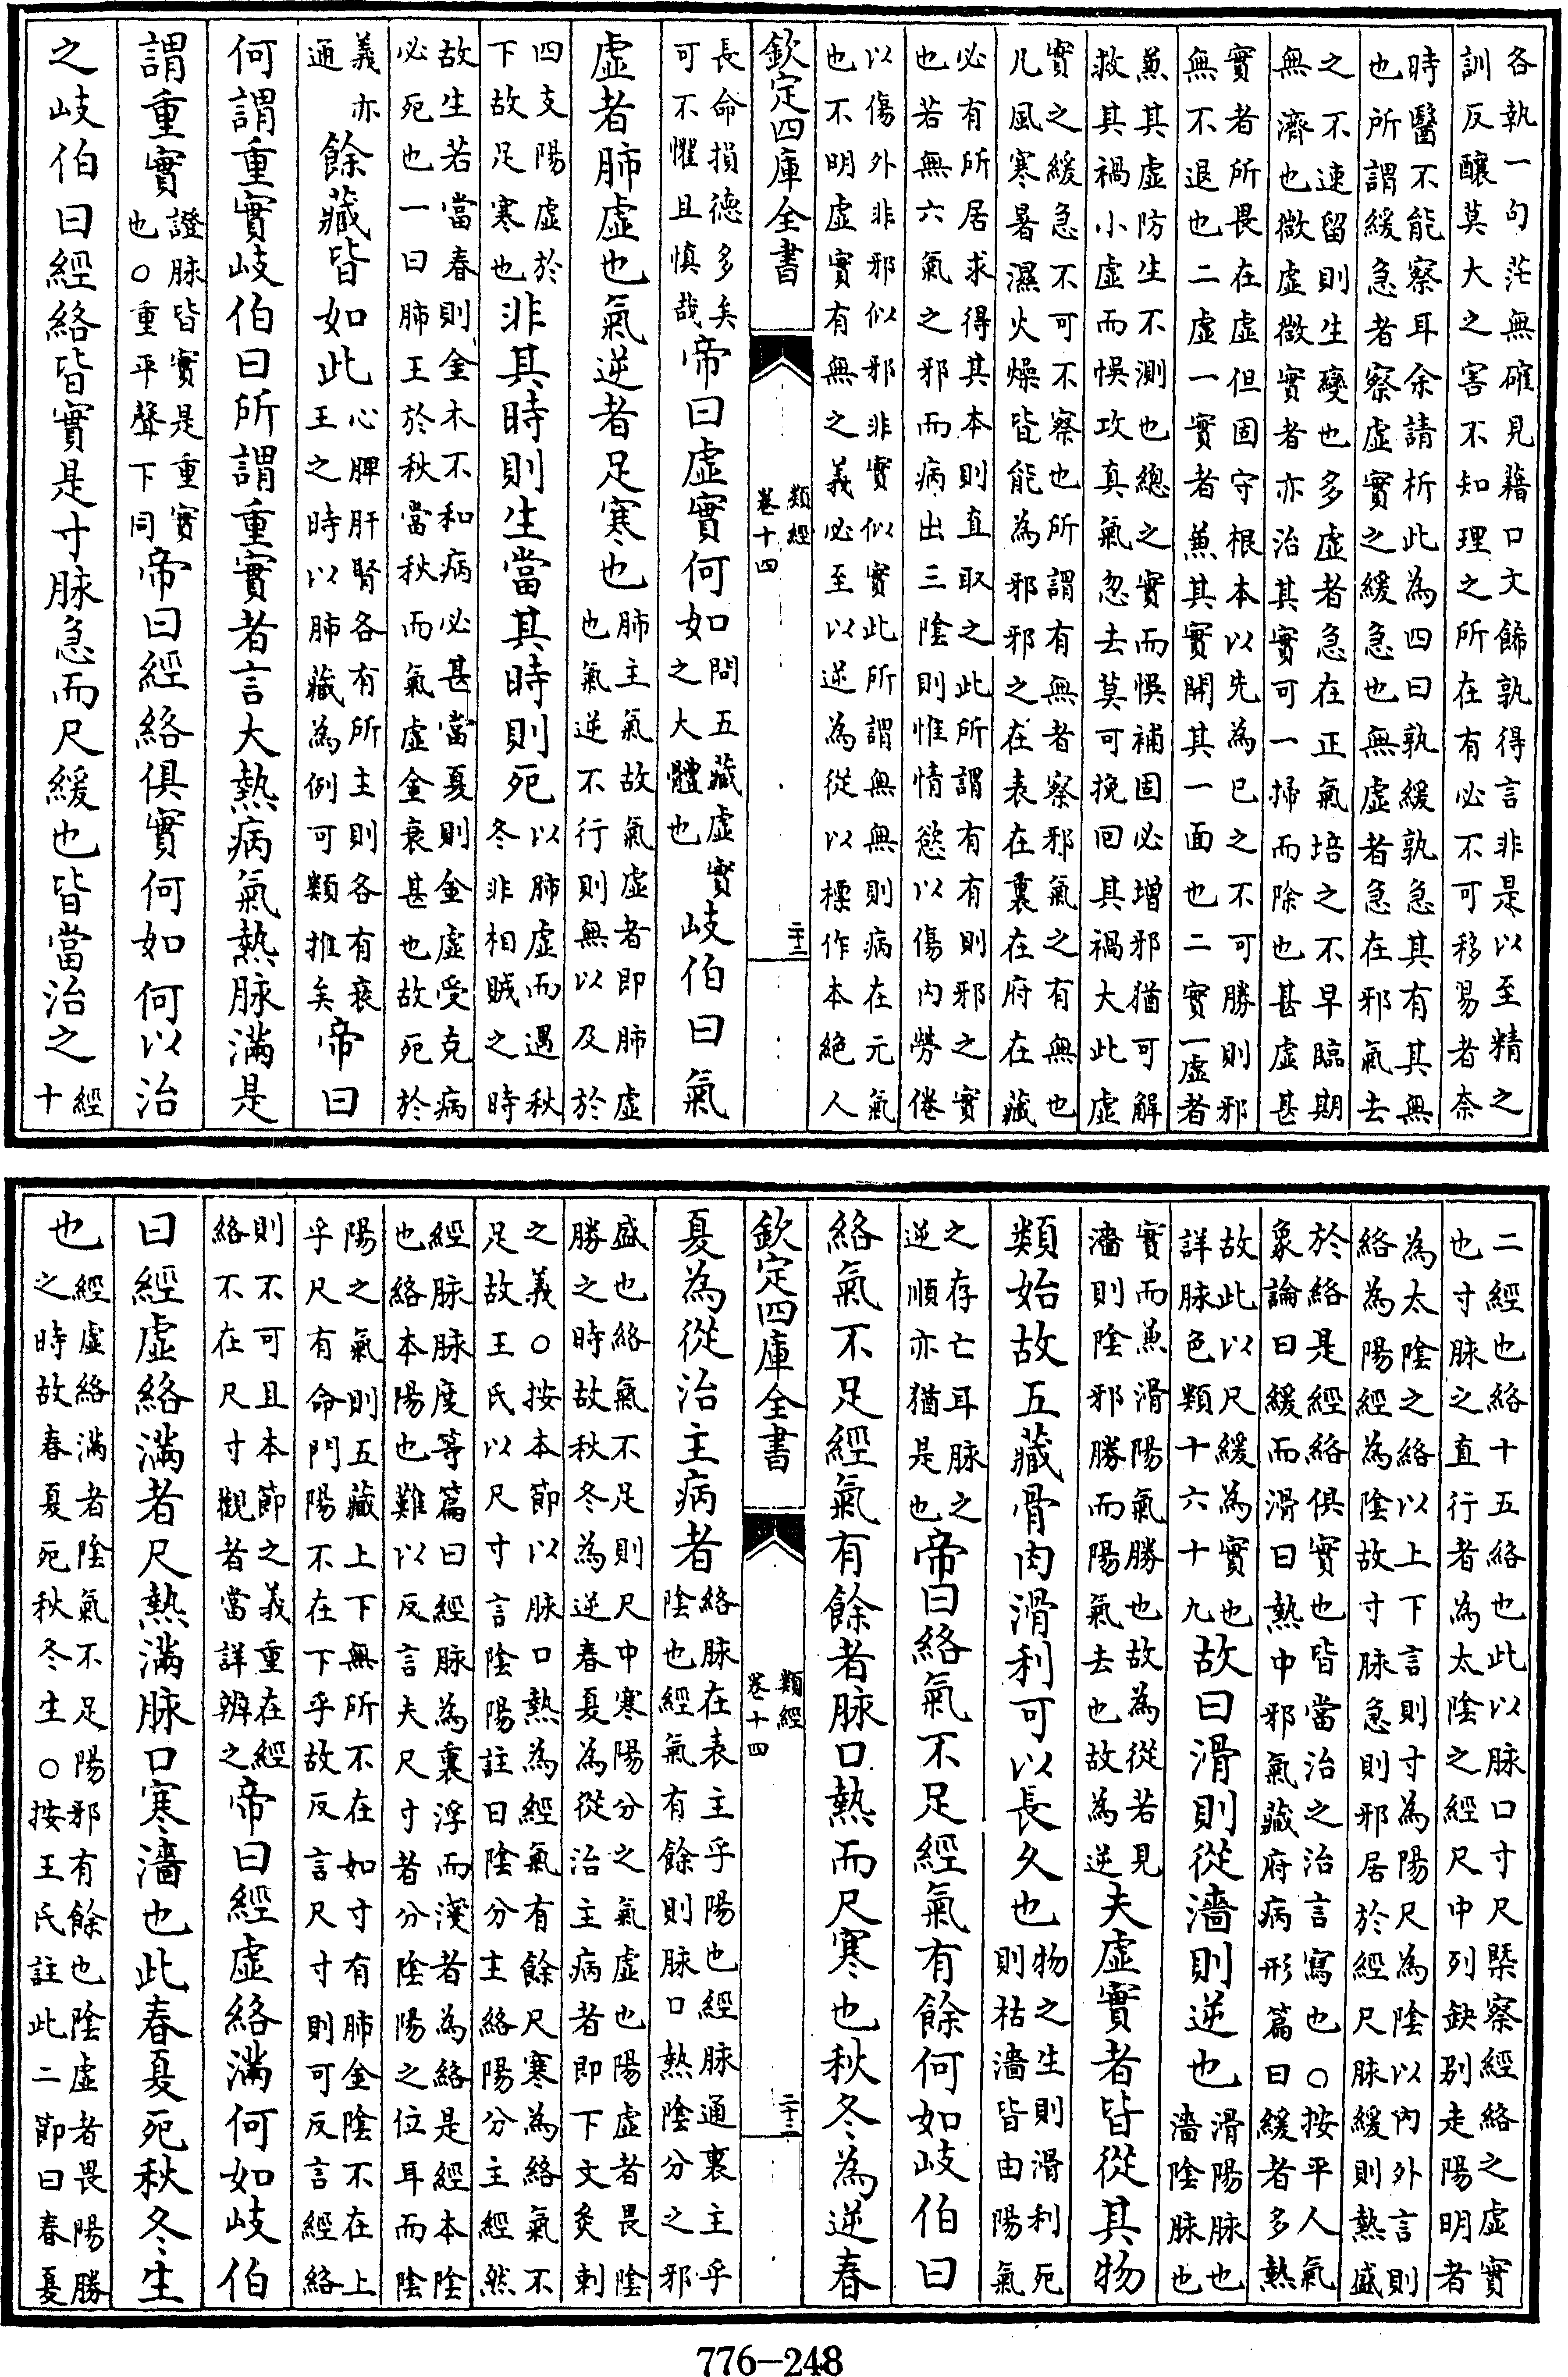 各執一句茫無確見藉口文飾孰得言非是以至精之
訓反釀莫大之害不知理之所在有必不可移易者奈
時醫不能察耳余請析此為四曰孰緩孰急其有其無
也所謂緩急者察虛實之緩急也無虛者急在邪氣去
之不速留則生變也多虛者急在正氣培之不早臨期
無濟也微虛微實者亦治其實可一掃而除也甚虛甚
實者所畏在虛但固守根本以先為巳之不可勝則邪
無不退也二虛一實者兼其實開其一面也二實一虛者
兼其虛防生不測也總之實而悞補固必增邪猶可解
救其禍小虛而悞攻真氣忽去莫可挽回其禍大此虛
實之緩急不可不察也所謂有無者察邪氣之有無也
凡風寒暑濕火燥皆能為邪邪之在表在裏在府在藏
必有所居求得其本則直取之此所謂有有則邪之實
也若無六氣之邪而病出三陰則惟情慾以傷内勞倦
以傷外非邪似邪非實似實此所謂無無則病在元氣
也不明虛實有無之義必至以逆為從以標作本絶人
欽定四庫全書 類經 卷十四 二十二
長命損德多矣可不懼且慎哉帝曰虛實何如問五藏虛實之大體也岐伯曰氣
虛者肺虛也氣逆者足寒也肺主氣故氣虛者即肺虛也氣逆不行則無以及於
四支陽虛於下故足寒也非其時則生當其時則死以肺虛而遇秋冬非相賊之時
故生若當春則金木不和病必甚當夏則金虛受克病
必死也一曰肺王於秋當秋而氣虛金衰甚也故死於
義亦通餘藏皆如此心脾肝腎各有所主則各有衰王之時以肺藏為例可類推矣帝曰
何謂重實岐伯曰所謂重實者言大熱病氣熱脉滿是
謂重實證脉皆實是重實也○重平聲下同帝曰經絡俱實何如何以治
之岐伯曰經絡皆實是寸脉急而尺緩也皆當治之經十
二經也絡十五絡也此以脉口寸尺槩察經絡之虛實
也寸脉之直行者為太陰之經尺中列缺别走陽明者
為太陰之絡以上下言則寸為陽尺為陰以内外言則
絡為陽經為陰故寸脉急則邪居於經尺脉緩則熱盛
於絡是經絡俱實也皆當治之治言寫也○按平人氣
象論曰緩而滑曰熱中邪氣藏府病形篇曰緩者多熱
故此以尺緩為實也詳脉色類十六十九故曰滑則從濇則逆也滑陽脉也濇陰脉也
實而兼滑陽氣勝也故為從若見濇則陰邪勝而陽氣去也故為逆夫虛實者皆從其物
類始故五藏骨肉滑利可以長久也物之生則滑利死則枯濇皆由陽氣
之存亡耳脉之逆順亦猶是也帝曰絡氣不足經氣有餘何如岐伯曰
絡氣不足經氣有餘者脉口熱而尺寒也秋冬為逆春
欽定四庫全書 類經 卷十四 二十三
夏為從治主病者絡脉在表主乎陽也經脉通裏主乎陰也經氣有餘則脉口熱陰分之邪
盛也絡氣不足則尺中寒陽分之氣虛也陽虛者畏陰
勝之時故秋冬為逆春夏為從治主病者即下文灸刺
之義○按本節以脉口熱為經氣有餘尺寒為絡氣不
足故王氏以尺寸言陰陽註曰陰分主絡陽分主經然
經脉脉度等篇曰經脉為裏浮而淺者為絡是經本陰
也絡本陽也難以反言夫尺寸者分陰陽之位耳而陰
陽之氣則五藏上下無所不在如寸有肺金陰不在上
乎尺有命門陽不在下乎故反言尺寸則可反言經絡
則不可且本節之義重在經絡不在尺寸觀者當詳辨之帝曰經虛絡滿何如岐伯
曰經虛絡滿者尺熱滿脉口寒濇也此春夏死秋冬生
也經虛絡滿者陰氣不足陽邪有餘也陰虛者畏陽勝之時故春夏死秋冬生○按王氏註此二節曰春夏
776-248